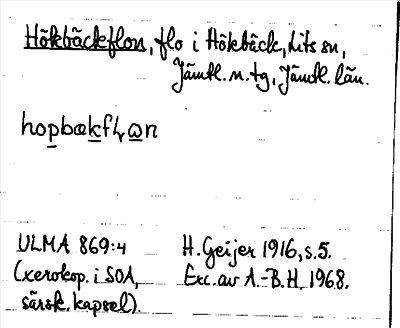 Hökbäckflon, flo i Hökbäck, Lits sn,
Jämtl. n. tg, Jämtl. län.
hopbækflωn
ULMA 869:4 H. Geijer 1916, s. 5.
(xerokop. i SOA, Exc. av A.-B. H. 1968.
särsk. kapsel).